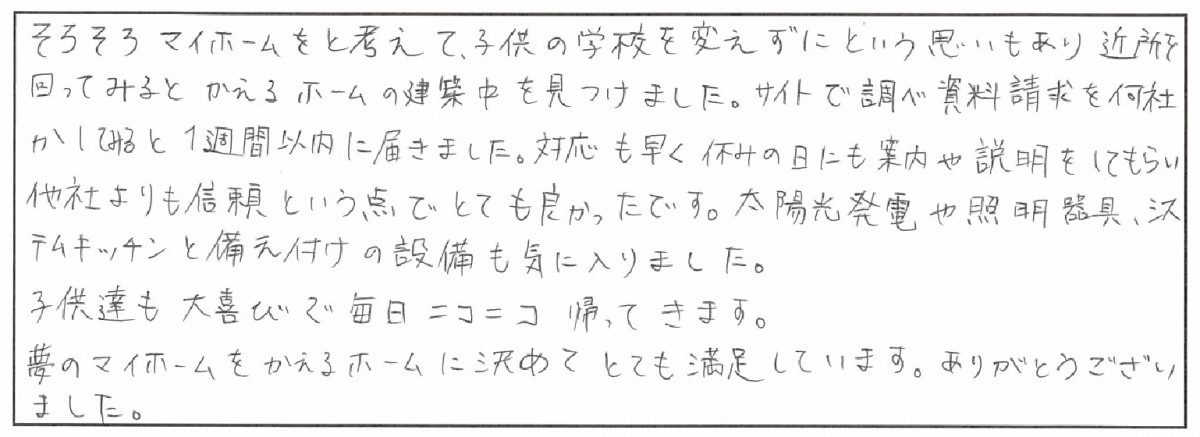 そろそろマイホームをと考えて、子供の学校を変えずにという思いもあり近所を
回ってみるとかえるホームの建築中を見つけました。サイトで調べ資料請求を何社
かしてみると1週間以内に届きました。対応も早く休みの日にも案内や説明をしてもらい
他社よりも信頼という点でとても良かったです。太陽光発電や照明器具、シス
テムキッチンと備え付けの設備も気に入りました。
子供達も大喜びで毎日ニコニコ帰ってきます。
夢のマイホームをかえるホームに決めてとても満足しています。ありがとうござい
ました。